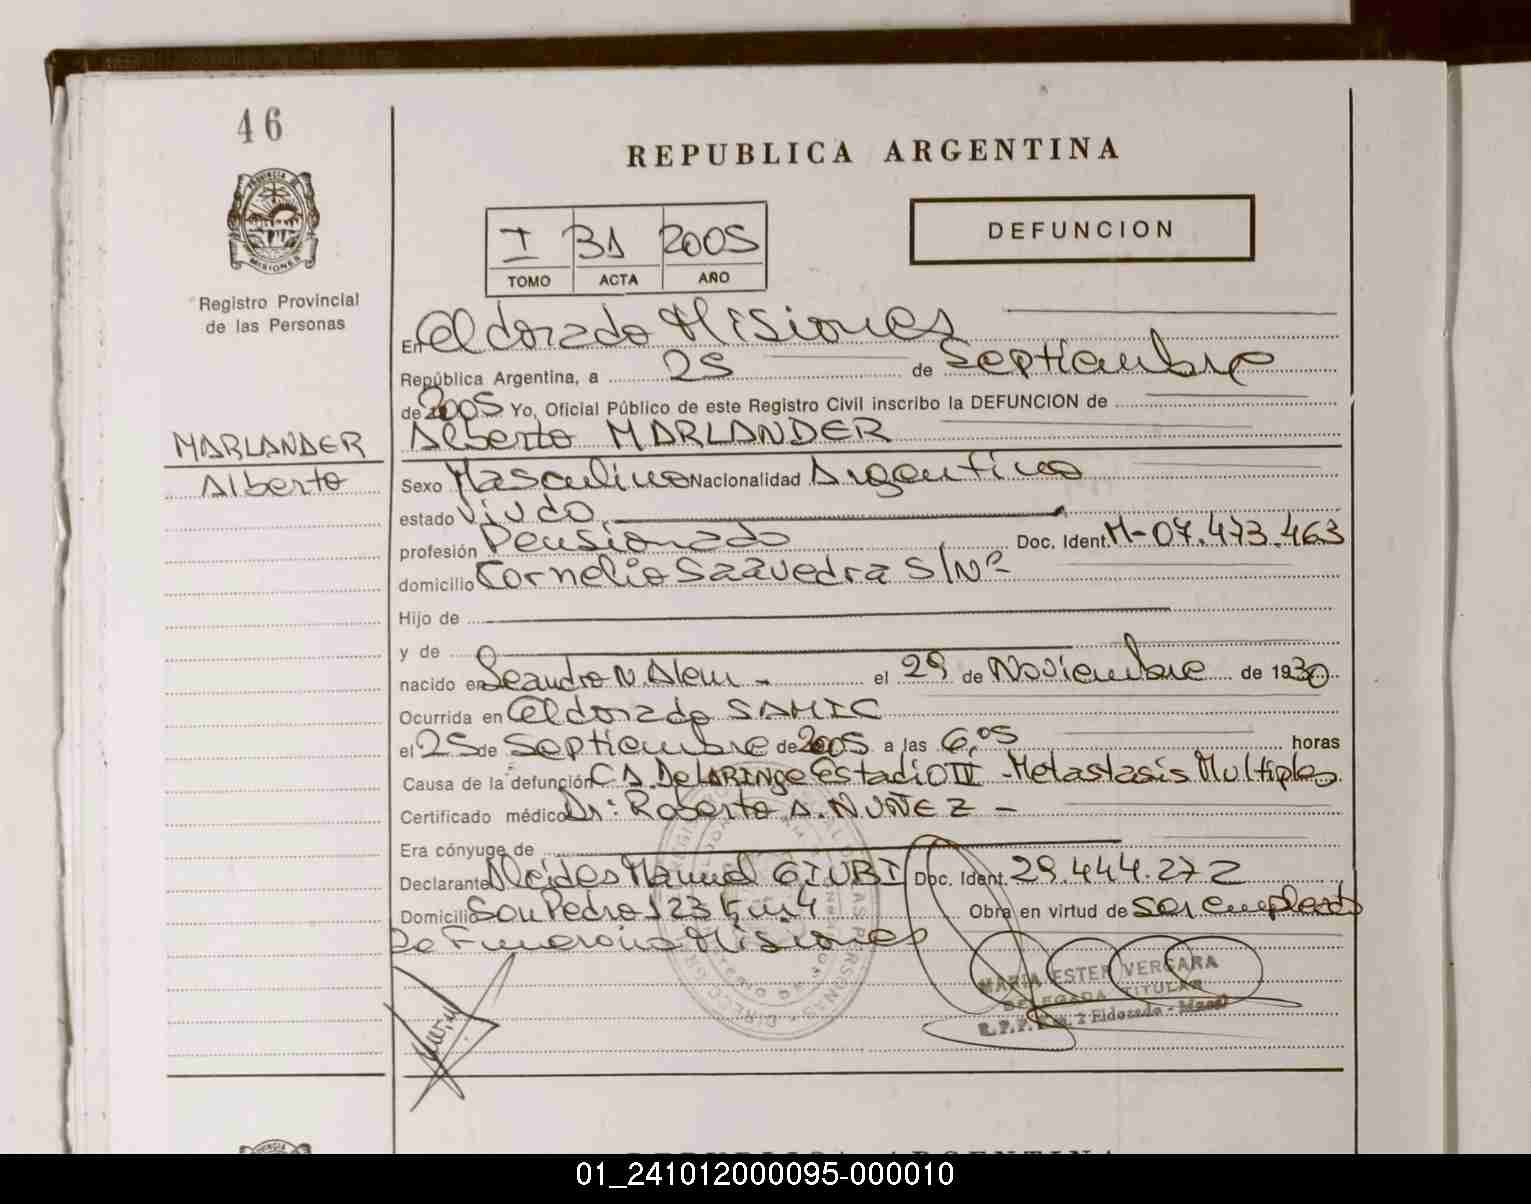 46
PROVINCIA DE
MISIONES
Registro Provincial
de las Personas
REPUBLICA ARGENTINA
I 31 2005
TOMO ACTA AÑO
DEFUNCION
En Eldorado Misiones
República Argentina, a 25 de Septiembre
de 2005 Yo, Oficial Público de este Registro Civil inscribo la DEFUNCION de
MARLANDER
Alberto
Alberto MARLANDER
Sexo Masculino Nacionalidad Argentino
estado Viudo
profesión Pensionado Doc. Ident. M-07.473.463
domicilio Cornelio Saavedra S/Nº
Hijo de
y de
nacido en Leandro N. Alem - el 29 de Noviembre de 1930
Ocurrida en Eldorado SAMIC
el 25 de Septiembre de 2005 a las 6,05 horas
Causa de la defunción CA. De LARINGe Estadio II - Metastasis Multiples
Certificado médico Dr: Roberto A. NUÑEZ -
Era cónyuge de
Declarante Alcides Manuel GIUBI Doc. Ident. 29.444.272
Domicilio San Pedro 123 km 4 Obra en virtud de ser empleado
De Funeraria Misiones
MARIA ESTER VERGARA
DELEGADA TITULAR
2 Eldorado - Mnes
01_241012000095-000010